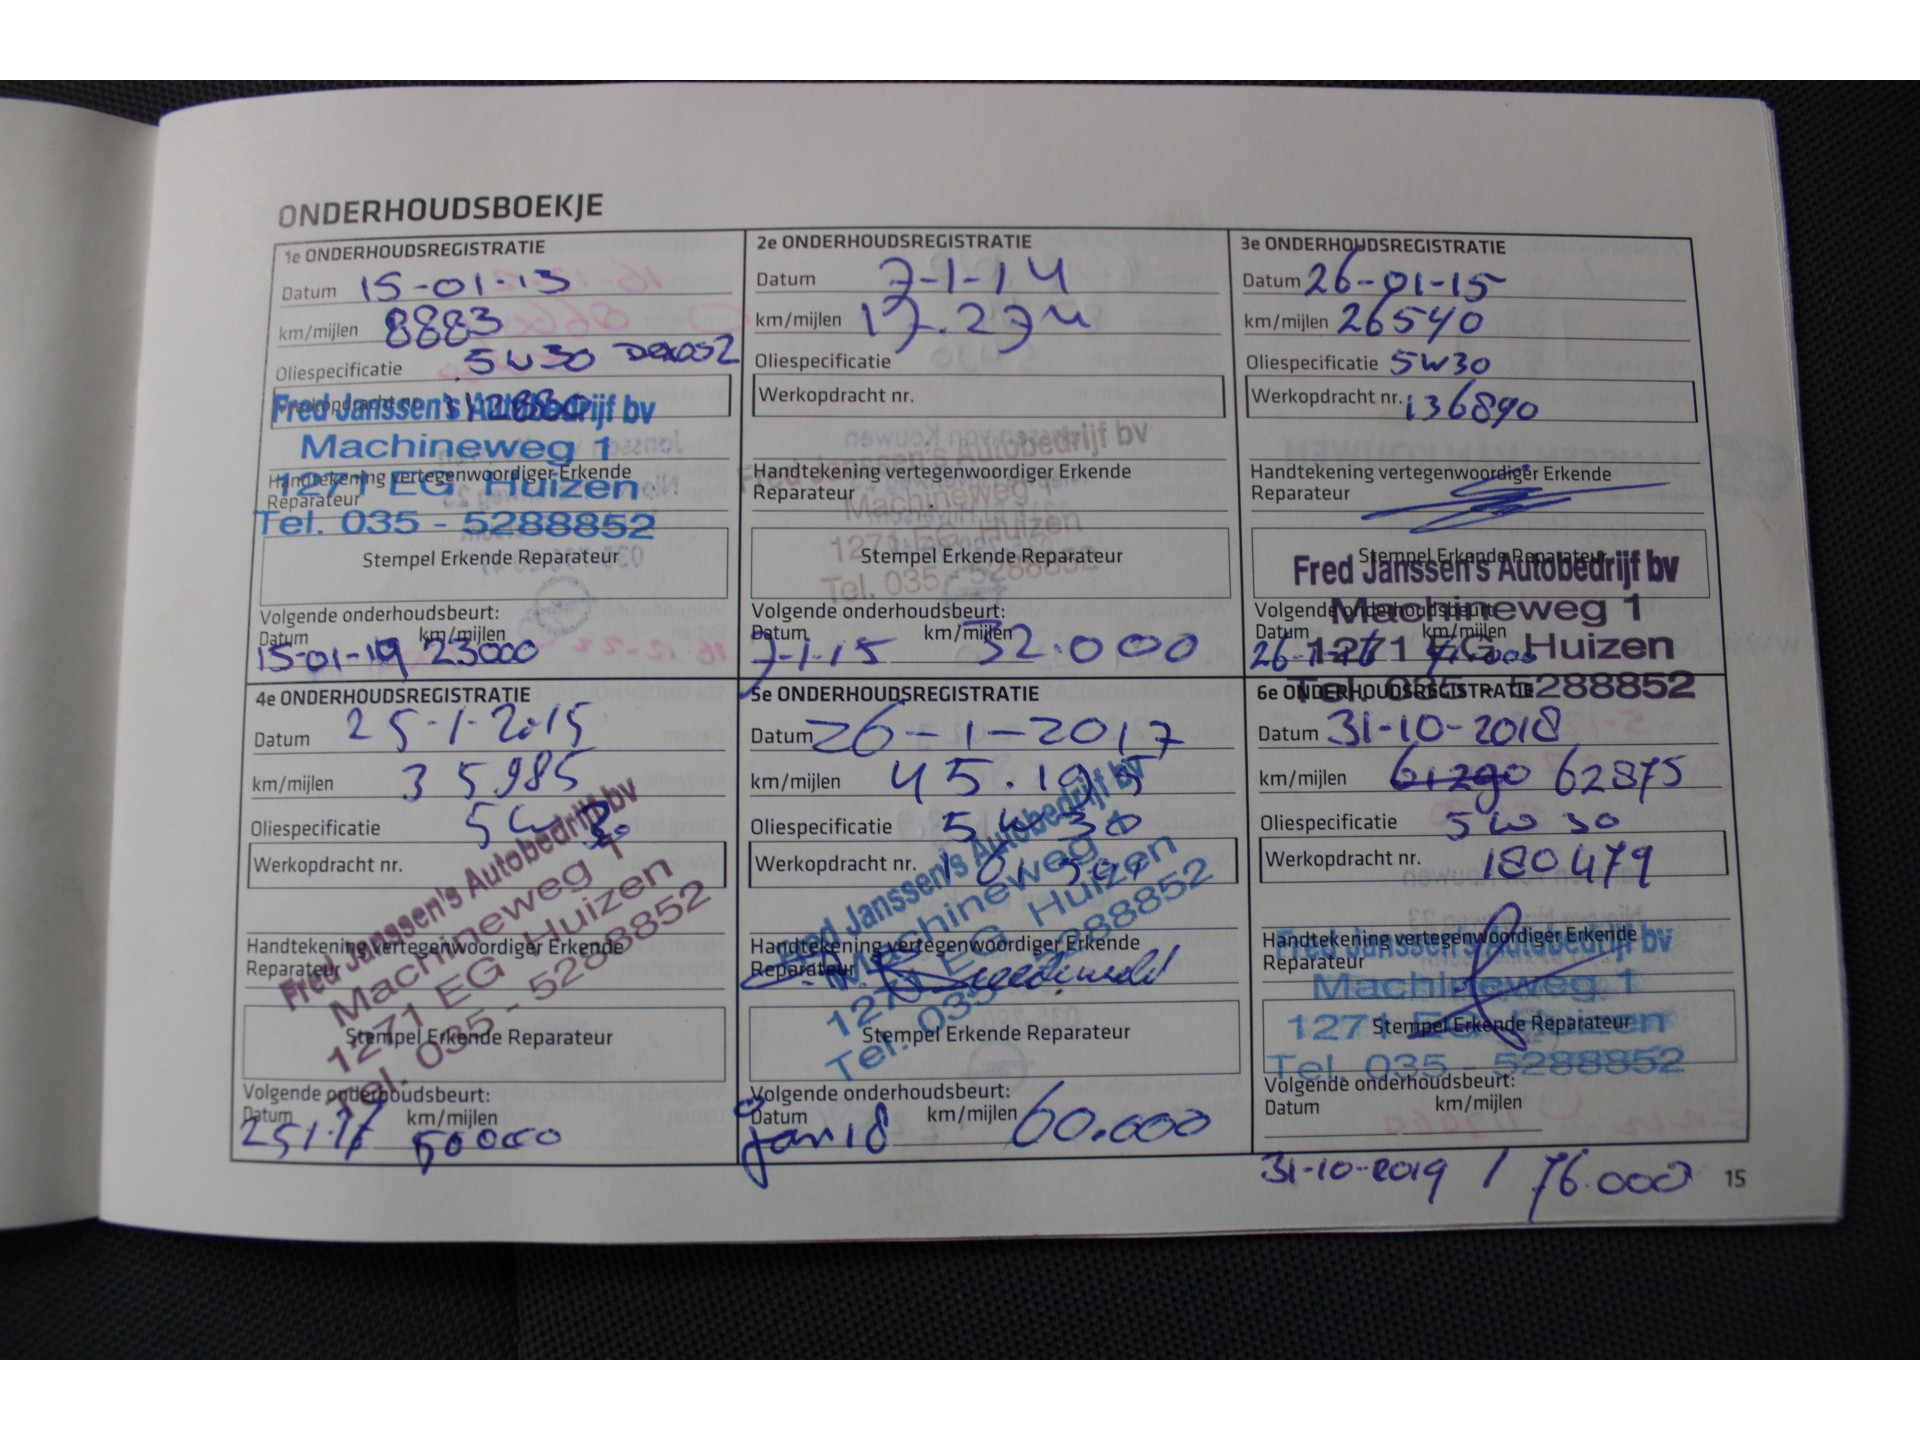 ONDERHOUDSBOEKJE
1e ONDERHOUDSREGISTRATIE
Datum 15-01-13
km/mijlen 8883
Oliespecificatie 5W30 Dexos2
Werkopdracht nr. 112880
Fred Janssen's Autobedrijf bv
Machineweg 1
Handtekening vertegenwoordiger Erkende
1271 EG Huizen
Reparateur
Tel. 035 - 5288852
Stempel Erkende Reparateur
Volgende onderhoudsbeurt:
Datum km/mijlen
15-01-19 23000
2e ONDERHOUDSREGISTRATIE
Datum 7-1-14
km/mijlen 17.274
Oliespecificatie
Werkopdracht nr.
Fred Janssen's Autobedrijf bv
Handtekening vertegenwoordiger Erkende
Reparateur
Machineweg 1
1271 EG Huizen
Stempel Erkende Reparateur
Tel. 035 - 5288852
Volgende onderhoudsbeurt:
Datum km/mijlen
7-1-15 32.000
3e ONDERHOUDSREGISTRATIE
Datum 26-01-15
km/mijlen 26540
Oliespecificatie 5W30
Werkopdracht nr. 136890
Handtekening vertegenwoordiger Erkende
Reparateur
Stempel Erkende Reparateur
Fred Janssen's Autobedrijf bv
Volgende onderhoudsbeurt:
Machineweg 1
Datum km/mijlen
26-1-16
1271 EG Huizen
Tel. 035 - 5288852
4e ONDERHOUDSREGISTRATIE
Datum 25-1-2015
km/mijlen 35985
Oliespecificatie 5W30
Werkopdracht nr.
Fred Janssen's Autobedrijf bv
Machineweg 1
1271 EG Huizen
Tel. 035 - 5288852
Handtekening vertegenwoordiger Erkende
Reparateur
Stempel Erkende Reparateur
Volgende onderhoudsbeurt:
Datum km/mijlen
25-1-17 50000
5e ONDERHOUDSREGISTRATIE
Datum 26-1-2017
km/mijlen 45.195
Oliespecificatie 5W30
Werkopdracht nr.
Fred Janssen's Autobedrijf bv
Machineweg 1
1271 EG Huizen
Tel. 035 - 5288852
Handtekening vertegenwoordiger Erkende
Reparateur
Stempel Erkende Reparateur
Volgende onderhoudsbeurt:
Datum km/mijlen
jan 18 60.000
6e ONDERHOUDSREGISTRATIE
Datum 31-10-2018
km/mijlen 61290 62875
Oliespecificatie 5W30
Werkopdracht nr. 180479
Handtekening vertegenwoordiger Erkende
Fred Janssen's Autobedrijf bv
Reparateur
Machineweg 1
1271 EG Huizen
Stempel Erkende Reparateur
Tel. 035 - 5288852
Volgende onderhoudsbeurt:
Datum km/mijlen
31-10-2019 / 76.000
15